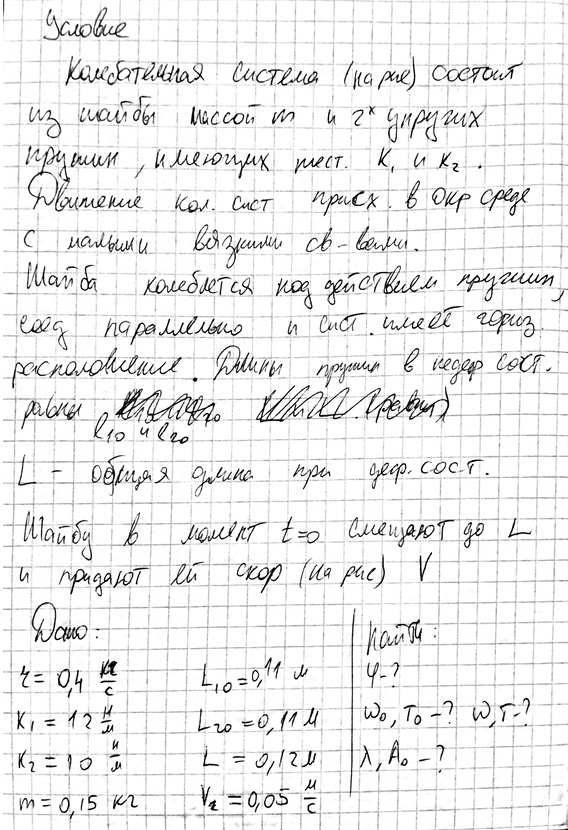 Условие
Колебательная система (на рис) состоит
из шайбы массой m и 2х упругих
пружин, имеющих жест. K₁ и K₂.
Движение кол. сист присх. в окр среде
с малыми вязкими св-вами.
Шайба колеблется под действием пружин,
соед параллельно и сист. имеет гориз.
расположение. Длины пружин в недеф сост.
равны
l₁₀ и l₂₀
L - общая длина при деф. сост.
Шайбу в момент t=0 смещают до L
и придают ей скор (на рис) V
Дано:
r = 0,4 кг/с L₁₀ = 0,11 м
K₁ = 12 н/м L₂₀ = 0,11 м
K₂ = 10 н/м L = 0,12 м
m = 0,15 кг = 0,05 м/с
Найти:
φ-?
ω₀, T₀ -? ω, T-?
λ, A₀ -?